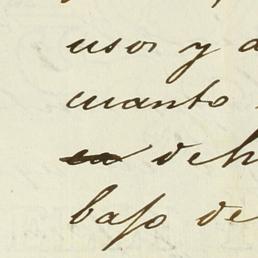 usos y d
cuanto
en deh
bajo de